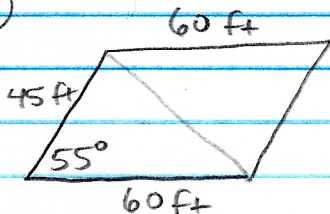 )
60 ft
45 ft
55°
60 ft